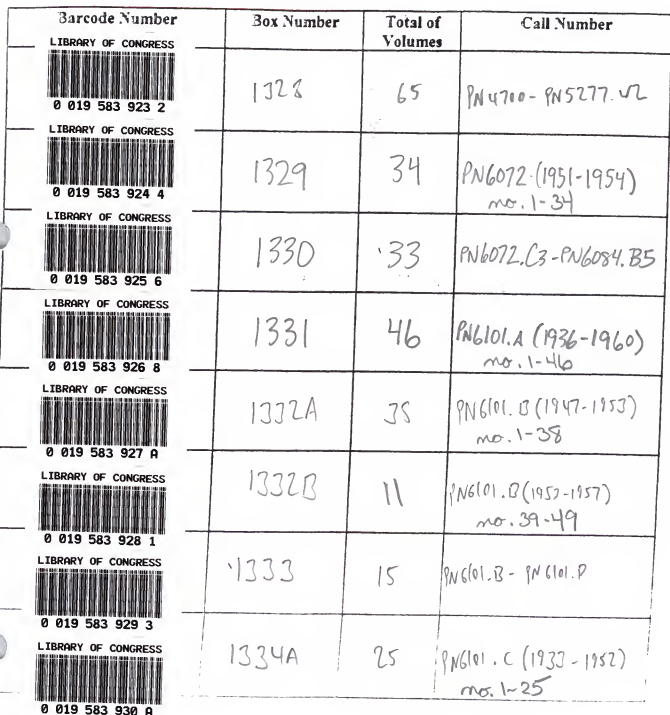 Barcode Number Box Number Total of Volumes Call Number
LIBRARY OF CONGRESS
0 019 583 923 2
1328 65 PN4700-PN5277.V2
LIBRARY OF CONGRESS
0 019 583 924 4
1329 34 PN6072.(1951-1954)
no. 1-34
LIBRARY OF CONGRESS
0 019 583 925 6
1330 33 PN6072.C3-PN6084.B5
LIBRARY OF CONGRESS
0 019 583 926 8
1331 46 PN6101.A (1936-1960)
no. 1-46
LIBRARY OF CONGRESS
0 019 583 927 A
1332A 38 PN6101.B (1947-1953)
no. 1-38
LIBRARY OF CONGRESS
0 019 583 928 1
1332B 11 PN6101.B (1953-1957)
no. 39-49
LIBRARY OF CONGRESS
0 019 583 929 3
1333 15 PN6101.B - PN6101.P
LIBRARY OF CONGRESS
0 019 583 930 A
1334A 25 PN6101.C (1933-1952)
no. 1-25